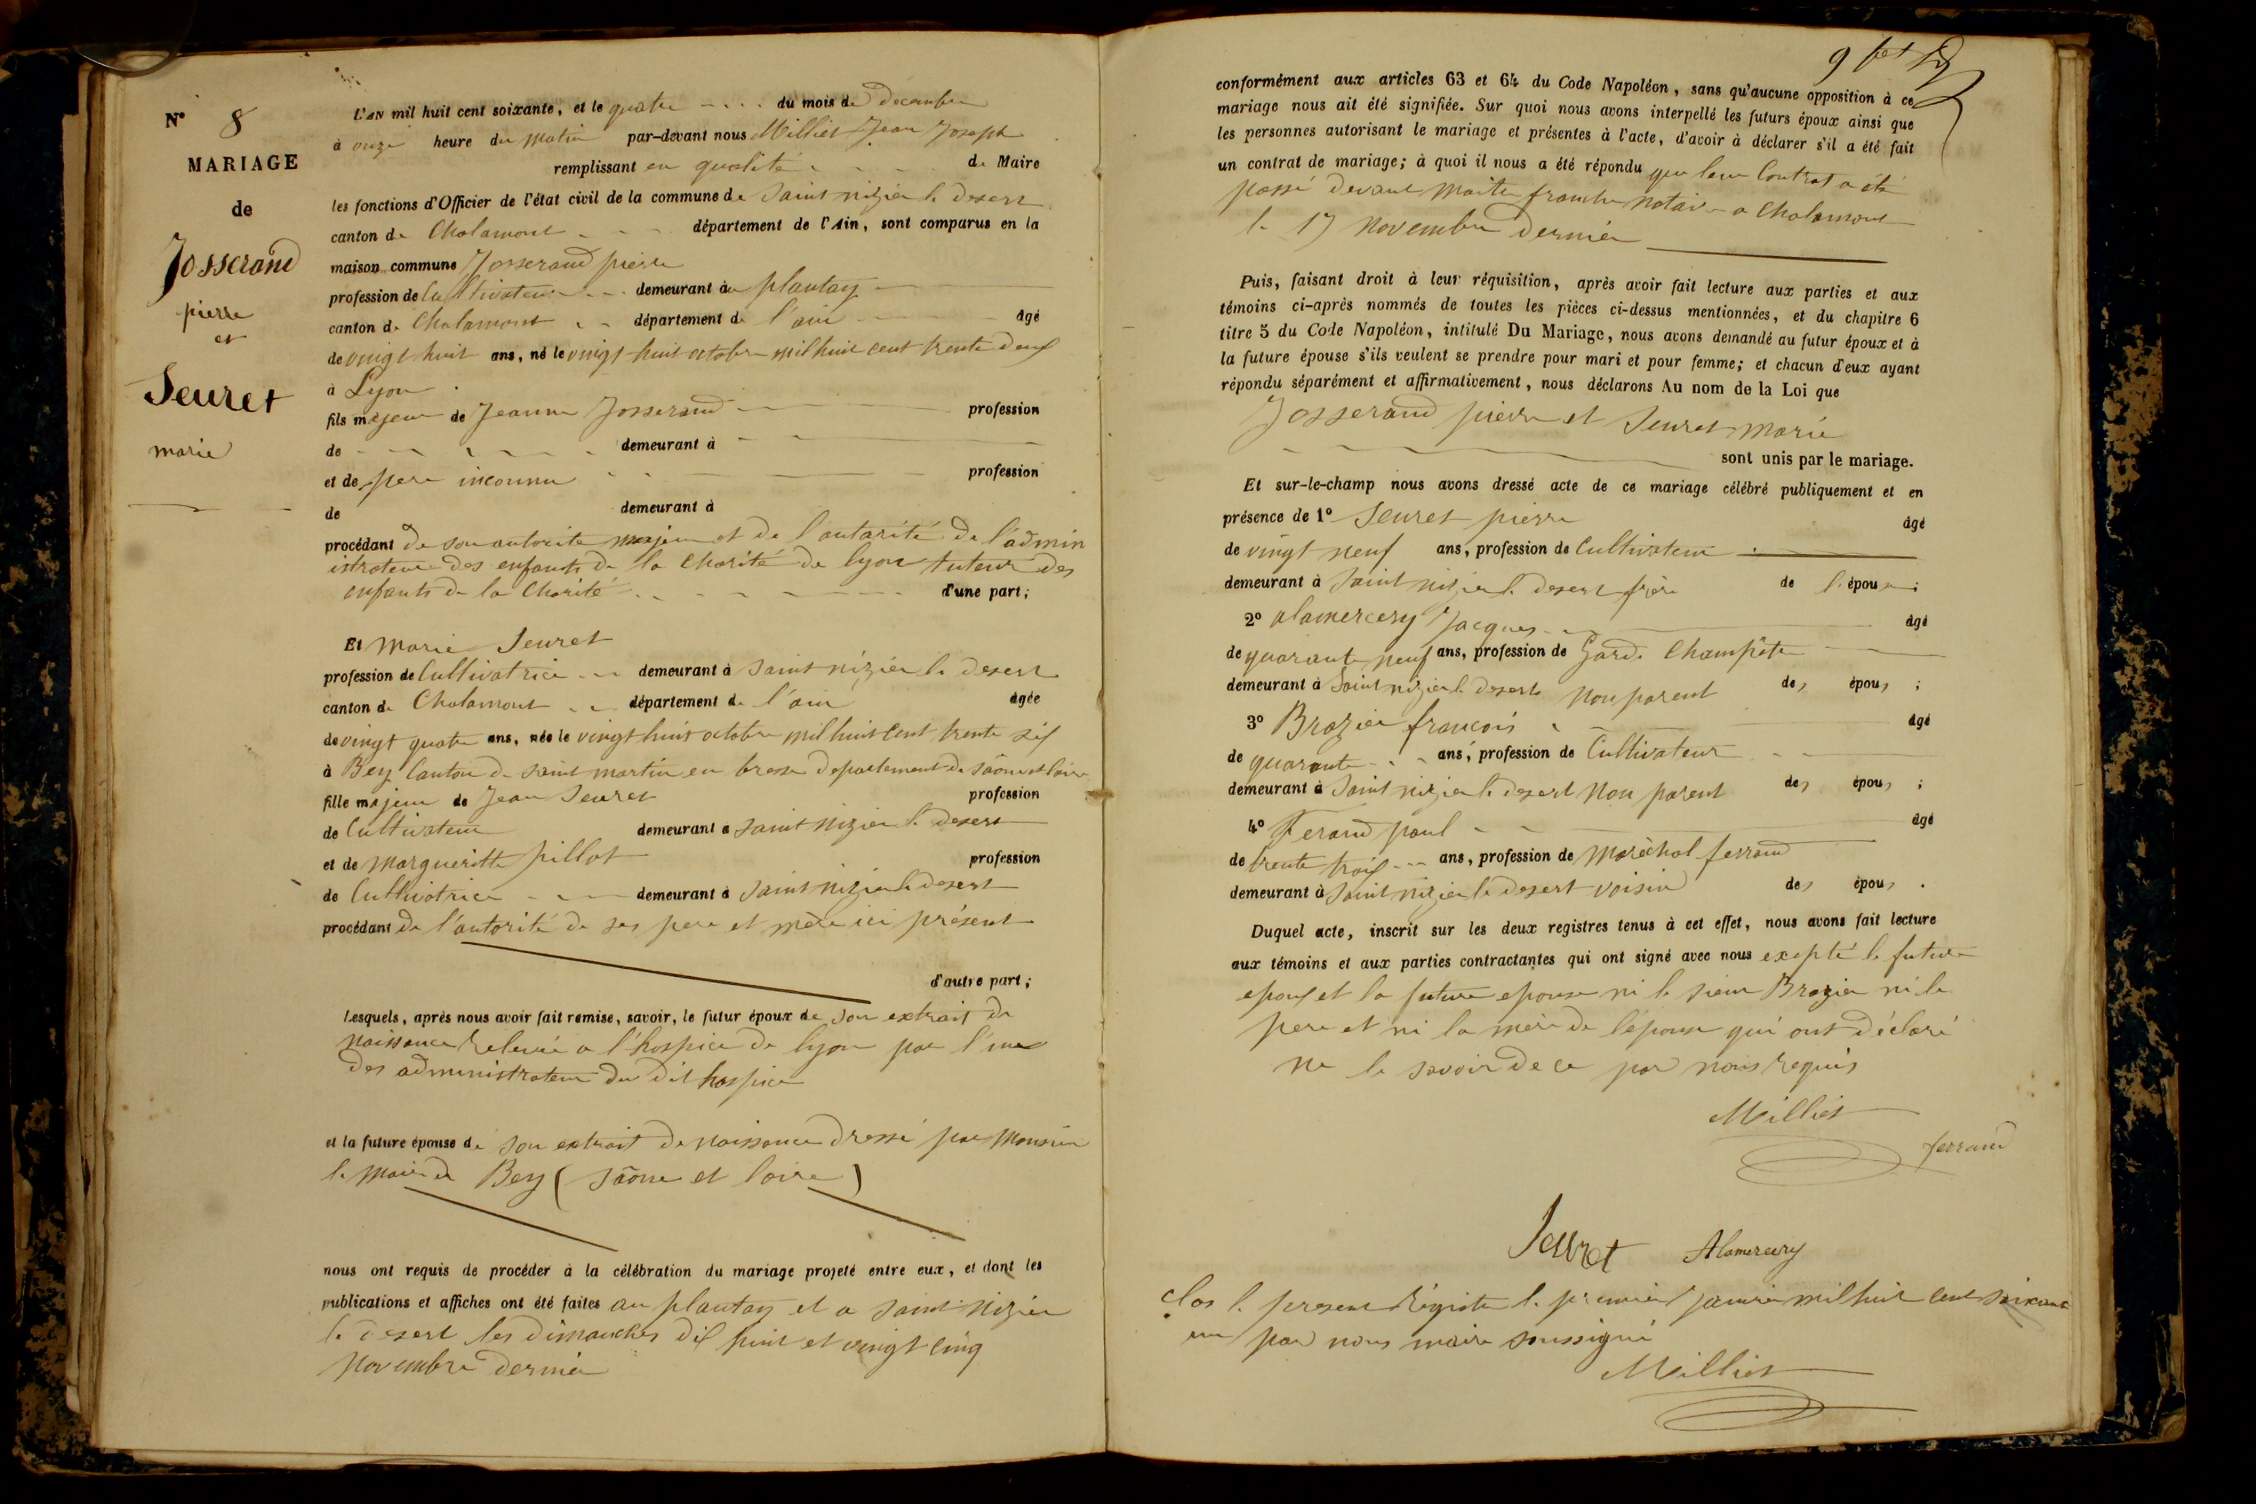 N° 8
MARIAGE
de
Josserand
pierre
et
Seuret
marie
L'AN mil huit cent soixante, et le quatre du mois de Decembre
à onze heure du matin par-devant nous Milliet Jean Joseph
remplissant en qualité de Maire
les fonctions d'Officier de l'état civil de la commune de Saint nizier le Desert
canton de Chalamont département de l'Ain, sont comparus en la
maison commune Josserand pierre
profession de Cultivateur demeurant au plantay
canton de Chalamont département de l'ain âgé
de vingt huit ans, né le vingt huit octobre mil huit cent trente deux
à Lyon
fils majeur de Jeanne Josserand profession
de demeurant à
et de pere inconnu profession
de demeurant à
procédant de son autorité majeur et de l'autorité de l'admin
istrateur des enfants de la Charité de lyon tuteur des
enfants de la Charité d'une part;
Et Marie Seuret
profession de Cultivatrice demeurant à Saint nizier le desert
canton de Chalamont département de l'ain âgée
de vingt quatre ans, née le vingt huit octobre mil huit Cent trente six
à Bey Canton de saint martin en bresse departement de Saône et loire
fille majeur de Jean Seuret profession
de Cultivateur demeurant à saint nizier le Desert
et de Margueritte pillot profession
de Cultivatrice demeurant à Saint nizier le desert
procédant de l'autorité de ses pere et mère ici présent
d'autre part;
Lesquels, après nous avoir fait remise, savoir, le futur époux de son extrait de
naissance relevée a l'hospice de lyon par l'un
des administrateur du dit hospice
et la future épouse de son extrait de naissance dressé par Monsieur
le Maire de Bey (saône et loire)
nous ont requis de procéder à la célébration du mariage projeté entre eux, et dont les
publications et affiches ont été faites au plantay et a saint nizier
le desert les dimanches dix huit et vingt cinq
Novembre dernier
conformément aux articles 63 et 64 du Code Napoléon, sans qu'aucune opposition à ce
mariage nous ait été signifiée. Sur quoi nous avons interpellé les futurs époux ainsi que
les personnes autorisant le mariage et présentes à l'acte, d'avoir à déclarer s'il a été fait
un contrat de mariage; à quoi il nous a été répondu que leur Contrat a été
passé devant Maitre notaire a Chalamont
le 17 Novembre dernier
Puis, faisant droit à leur réquisition, après avoir fait lecture aux parties et aux
témoins ci-après nommés de toutes les pièces ci-dessus mentionnées, et du chapitre 6
titre 5 du Code Napoléon, intitulé Du Mariage, nous avons demandé au futur époux et à
la future épouse s'ils veulent se prendre pour mari et pour femme; et chacun d'eux ayant
répondu séparément et affirmativement, nous déclarons Au nom de la Loi que
Josserand pierre et Seuret marie
sont unis par le mariage.
Et sur-le-champ nous avons dressé acte de ce mariage célébré publiquement et en
présence de 1° Seuret pierre âgé
de vingt neuf ans, profession de Cultivateur
demeurant à saint nizier le Desert frère de l'épouse;
2° alamercery Jacques âgé
de quarante neuf ans, profession de Garde Champêtre
demeurant à Saint nizier le desert Non parent des épous;
3° Brazier francois âgé
de quarante ans, profession de Cultivateur
demeurant à Saint nizier le desert Non parent des épous;
4° Ferand paul âgé
de trente trois ans, profession de Maréchal ferrand
demeurant à Saint nizier le desert voisin des épous.
Duquel acte, inscrit sur les deux registres tenus à cet effet, nous avons fait lecture
aux témoins et aux parties contractantes qui ont signé avec nous exepté le future
epoux et la future epouse ni le sieur Brazier ni le
pere et ni la mère de l'épouse qui ont déclaré
ne le savoir de ce par nous requis
Milliet
ferrand
Seuret Alamercery
Clos le present régistre le premier Janvier mil huit cent soixante
un par nous maire soussigné
Milliet